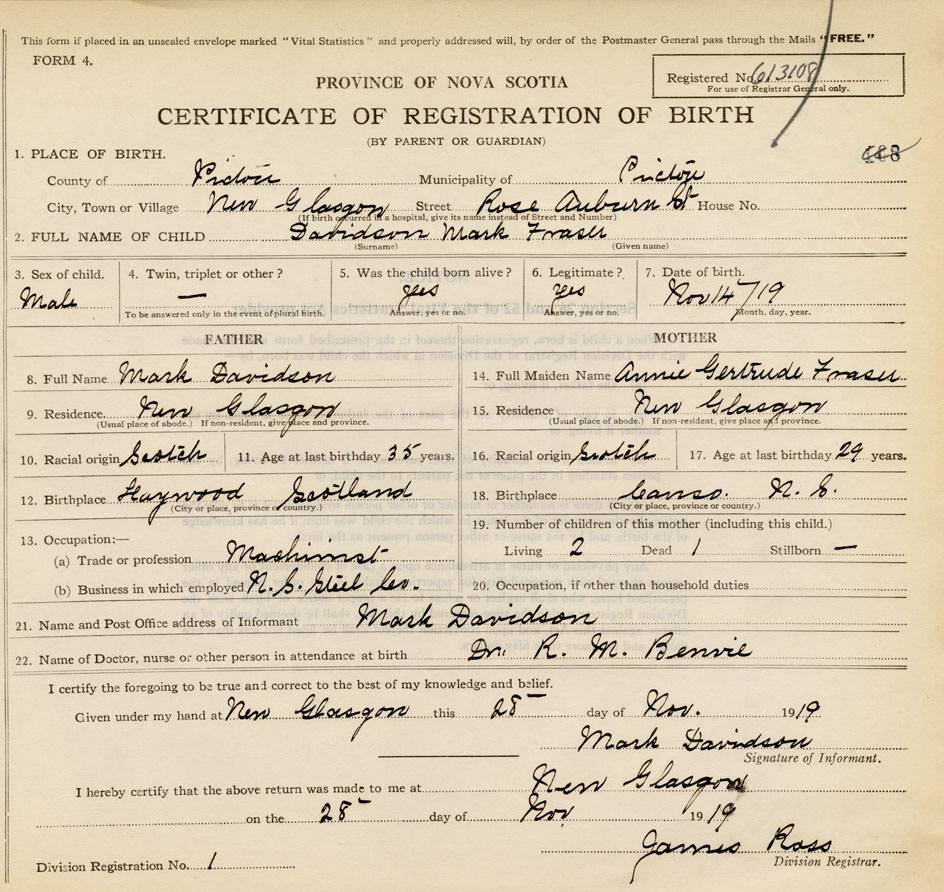 This form if placed in an unsealed envelope marked "Vital Statistics" and properly addressed will, by order of the Postmaster General pass through the Mails "FREE."
FORM 4.
Registered No. 613108
For use of Registrar General only.
PROVINCE OF NOVA SCOTIA
CERTIFICATE OF REGISTRATION OF BIRTH
(BY PARENT OR GUARDIAN)
1. PLACE OF BIRTH.
County of Pictou Municipality of Pictou
City, Town or Village New Glasgow Street Rose Auburn St House No.
(If birth occurred in a hospital, give its name instead of Street and Number)
2. FULL NAME OF CHILD Davidson Mark Fraser
(Surname) (Given name)
3. Sex of child. 4. Twin, triplet or other? 5. Was the child born alive? 6. Legitimate? 7. Date of birth.
Male — yes yes Nov 14/19
To be answered only in the event of plural birth. Answer, yes or no. Answer, yes or no. Month, day, year.
FATHER MOTHER
8. Full Name Mark Davidson 14. Full Maiden Name Annie Gertrude Fraser
9. Residence. New Glasgow 15. Residence New Glasgow
(Usual place of abode.) If non-resident, give place and province. (Usual place of abode.) If non-resident, give place and province.
10. Racial origin Scotch 11. Age at last birthday 35 years. 16. Racial origin Scotch 17. Age at last birthday 29 years.
12. Birthplace Haywood Scotland 18. Birthplace Canso. N. S.
(City or place, province or country.) (City or place, province or country.)
13. Occupation:— 19. Number of children of this mother (including this child.)
(a) Trade or profession Machinist Living 2 Dead 1 Stillborn —
(b) Business in which employed N. S. Steel Co. 20. Occupation, if other than household duties
21. Name and Post Office address of Informant Mark Davidson
22. Name of Doctor, nurse or other person in attendance at birth Dr. R. M. Benvie
I certify the foregoing to be true and correct to the best of my knowledge and belief.
Given under my hand at New Glasgow this 28 day of Nov. 1919
Mark Davidson
Signature of Informant.
I hereby certify that the above return was made to me at New Glasgow
on the 28 day of Nov 1919
James Ross
Division Registrar.
Division Registration No. 1